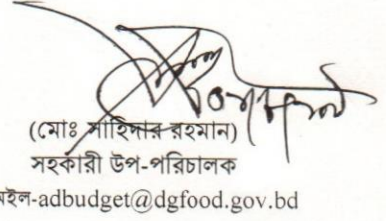 (মোঃ সাহিদার রহমান)
সহকারী উপ-পরিচালক
মইল-adbudget@dgfood.gov.bd